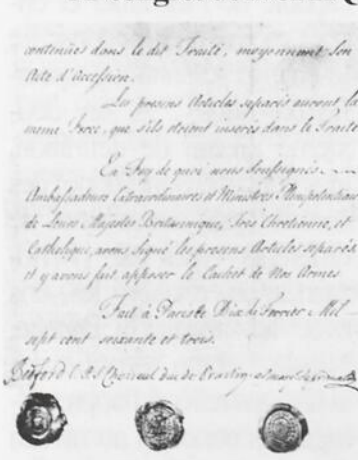 contenues dans le dit Traité, moyennant Son
Acte d'Accession.
Les presens Articles separés auront la
meme Force, que s'ils etoient inserés dans le Traité
En Foy de quoi nous Soussignés
Ambassadeurs Extraordinaires et Ministres Plenipotentiaires
de Leurs Majestés Britannique, Tres Chretienne, et
Catholique, avons signé les presens Articles separés,
et y avons fait apposer le Cachet de Nos Armes
Fait à Paris le Dix de Fevrier Mil
sept cent soixante et trois.
Bedford C.P.S. Choiseul duc de Praslin el marq. de Grimaldi